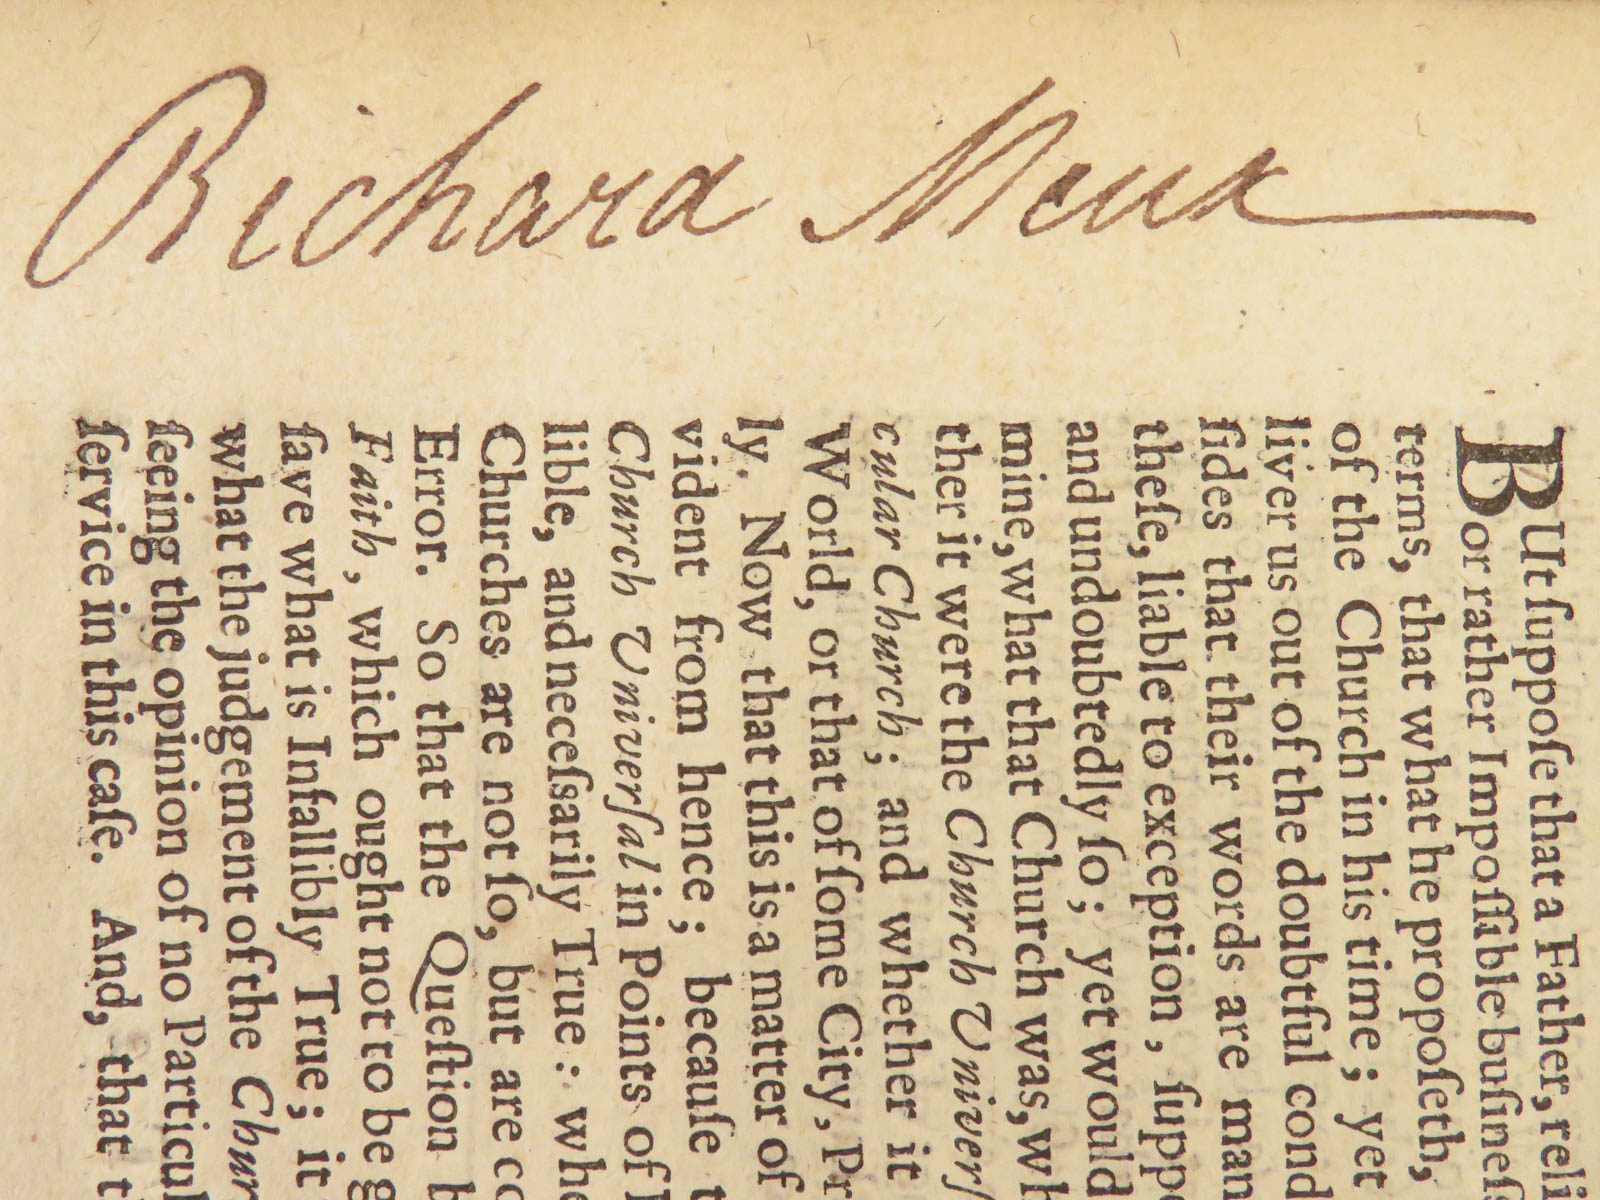 Richard Meux
BUt ſuppoſe that a Father, reli
or rather Impoſſible buſineſ
terms, that what he propoſeth,
of the Church in his time; yet
liver us out of the doubtful cond
ſides that their words are man
theſe, liable to exception, ſuppo
and undoubtedly ſo; yet would
mine, what that Church was, wh
ther it were the Church Univerſ
cular Church; and whether it
World, or that of ſome City, Pr
ly. Now that this is a matter of
vident from hence; becauſe t
Church Univerſal in Points of
lible, and neceſsarily True: whe
Churches are not ſo, but are co
Error. So that the Queſtion b
Faith, which ought not to be g
ſave what is Infallibly True; it
what the judgement of the Chur
ſeeing the opinion of no Particul
ſervice in this caſe. And, that t